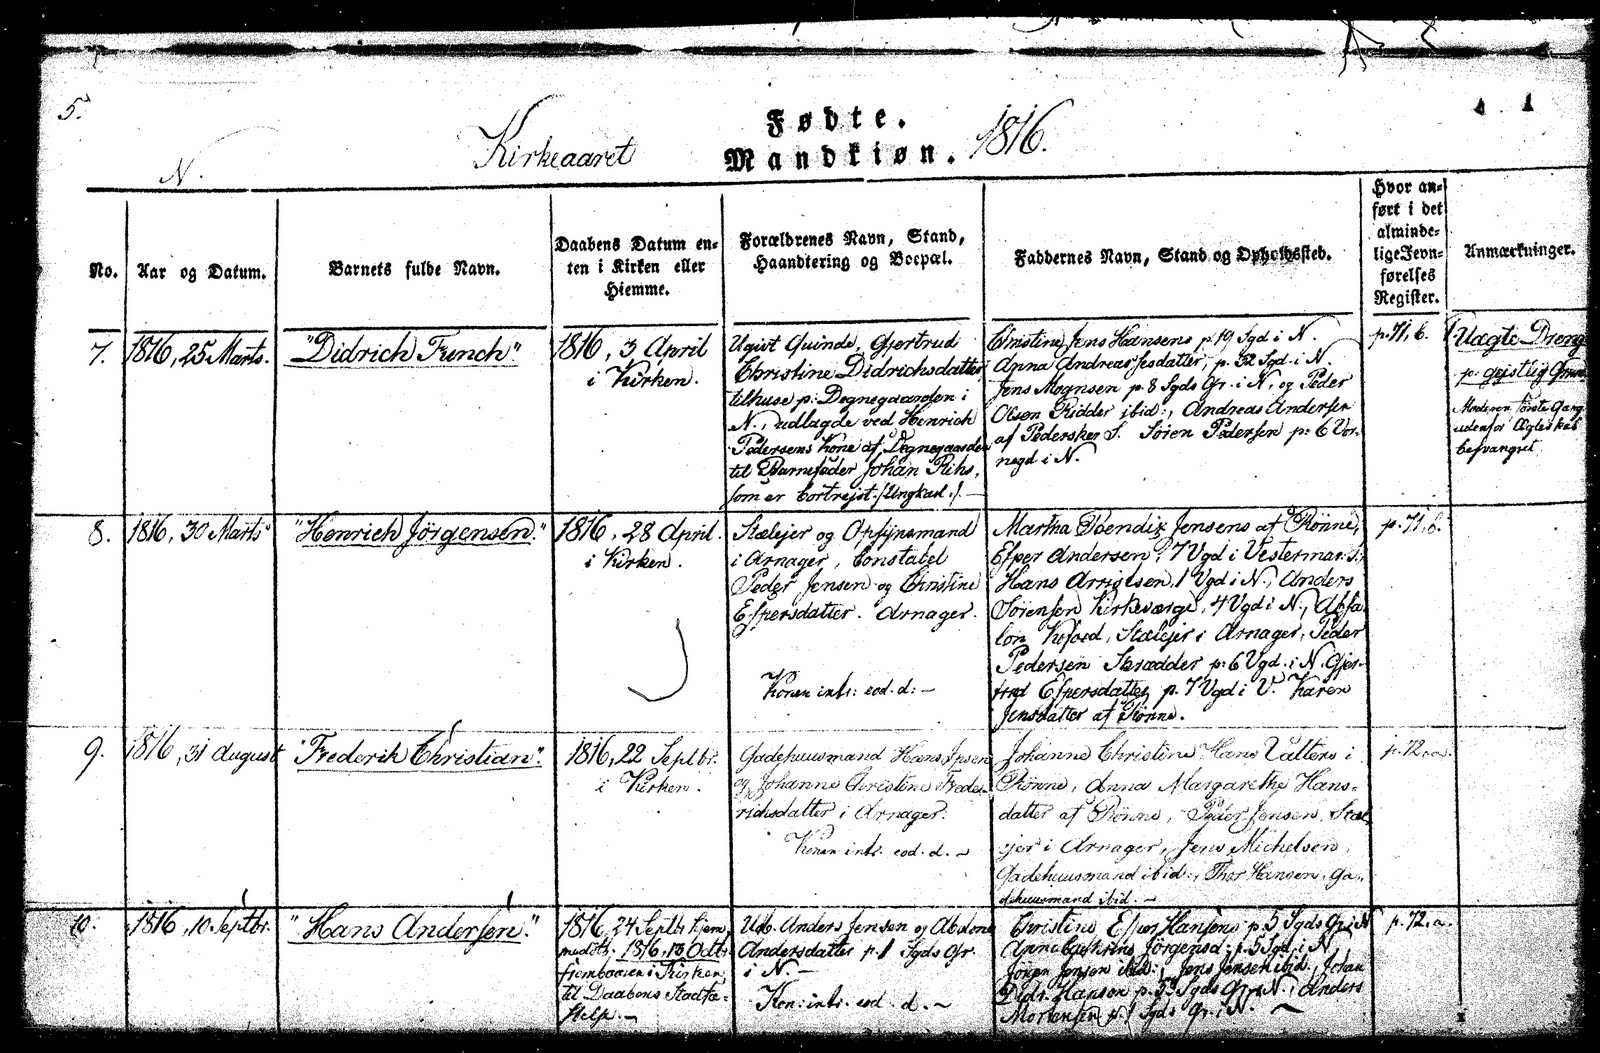 5.
Fødte.
N. Kirkeaaret Mandkiøn. 1816.
No.
Aar og Datum.
Barnets fulde Navn.
Daabens Datum en-
ten i Kirken eller
Hiemme.
Forældrenes Navn, Stand,
Haandtering og Boepæl.
Faddernes Navn, Stand og Opholdssted.
Hvor an-
ført i det
alminde-
lige Jevn-
førelses
Register.
Anmærkninger.
7.
1816, 25 Marts.
"Didrich Funch"
1816, 3 April
i Kirken.
Ugivt Quinde, Gjertrud
Christine Didrichsdatter
tilhuse p: Degnegaarden i
N., udlagde ved Henrich
Pedersens Kone af Degnegaarden
til Barnefader Johan
som er bortrejst. /: Ungkarl :/ —
Christine Jens Hansens p. 19 Sgd i N.
Anna Andreas p. 32 Sgd. i N.
Jens Mognsen p. 8 Sgds Gr. i N, og Peder
Olsen Ridder ibid:, Andreas Andersen
af Pedersker S. Sören Pedersen p: 6 Vor-
negd i N.
p. 71, b.
Uagte Dreng
p: gejstlig
Moderen første Gang
udenfor Ægteskab
besvangret.
8.
1816, 30 Marts
"Henrich Jörgensen"
1816, 28 April.
i Kirken.
Stælejer og Opsynsmand
i Arnager, Constabel
Peder Jensen og Christine
Espersdatter. Arnager.
Konen intr: eod. d: —
Martha Bendix Jensens af Rønne,
Esper Andersen, 7 Vgd i Vestermar. S.,
Hans Arrisen, 1 Vgd i N., Anders
Sörensen Kirkeværge, 4 Vgd i N., Absa-
lon Kofoed, Stælejer i Arnager, Peder
Pedersen Skrædder p: 6 Vgd. i N. Gjer-
trud Espersdatter p. 7 Vgd i V. Karen
Jensdatter af Rønne.
p. 71, b.
9.
1816, 31 August
"Frederik Christian"
1816, 22 Septbr.
i Kirken.
Gadehuusmand Hans Ipsen
og Johanne Christine Frede-
richsdatter i Arnager.
Konen intr. eod. d. —
Johanne Christine Hans Valters i
Rønne, Anna Margarethe Hans-
datter af Rønne, Peder Jensen, Stæl-
ejer i Arnager, Jens Michelsen,
Gadehuusmand ibid:, Thor Hansen, Ga-
dehuusmand ibid. —
p. 72. a.
10.
1816, 10 Septbr.
"Hans Andersen"
1816, 24 Septbr hjem-
medøbt. 1816, 13 Octbr
frembaaren i Kirken
til Daabens Stadfæ-
stelse. —
Udb. Anders Jensen og
Andersdatter p. 1 Sgds Gr.
i N. —
Kon: intr. eod. d. —
Christine Esper Hansens p. 5 Sgds Gr i N
Anne Cathrine Jörgensd: p. 5 Sgd. i N,
Jensen ibid:, Jens Jensen ibid., Johan
Didr. Hansen p. 5 Sgds Gr. N., Anders
Mortensen p. 1 Sgds Gr. i N. —
p. 72, a.